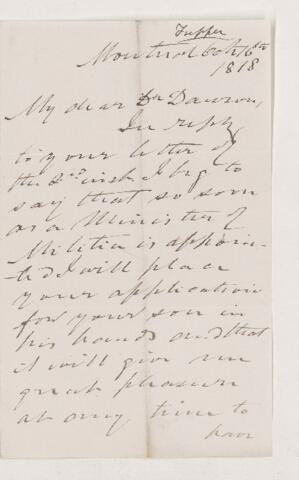 Tupper
Montreal Oct 16th
1878
My dear Dr Dawson,
In reply
to your letter of
the 2nd inst I beg to
say that so soon
as a Minister of
Militia is appoin-
ted I will place
your application
for your son in
his hands and that
it will give me
great pleasure
at any time to